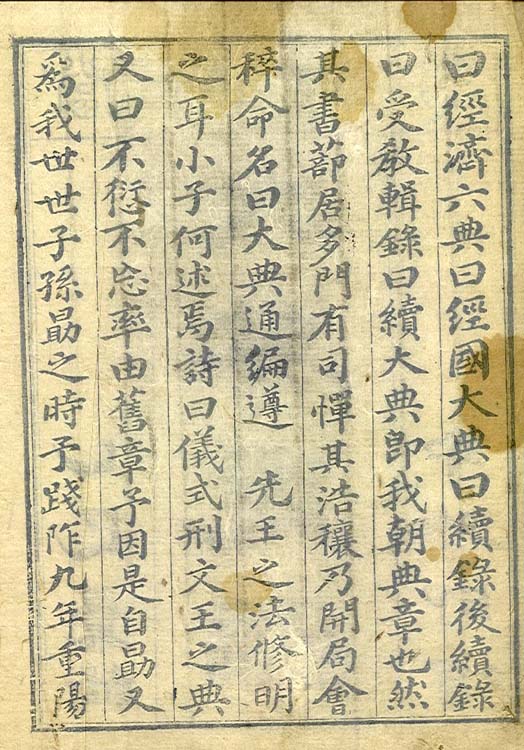 曰經濟六典曰經國大典曰續錄後續錄
曰受敎輯錄曰續大典即我朝典章也然
其書蔀居多門有司憚其浩穰乃開局會
稡命名曰大典通編遵　先王之法修明
之耳小子何述焉詩曰儀式刑文王之典
又曰不愆不忘率由舊章予因是自勗又
爲我世世子孫勗之時予踐阼九年重陽